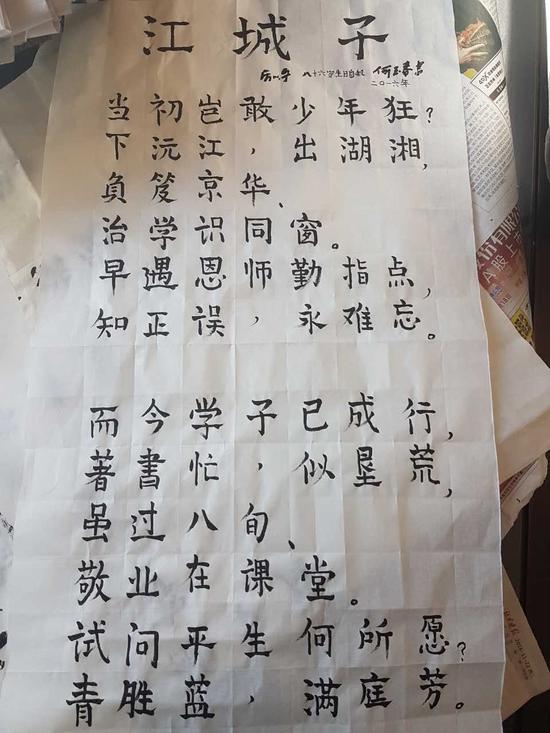 江城子
八十六岁生日自叙
二〇一六年
当初岂敢少年狂？
下沅江，出湖湘，
負笈京华、
治学识同窗。
早遇恩师勤指点，
知正误，永难忘。
而今学子已成行，
著書忙，似垦荒，
虽过八旬、
敬业在课堂。
试问平生何所愿？
青胜蓝，满庭芳。
A股上